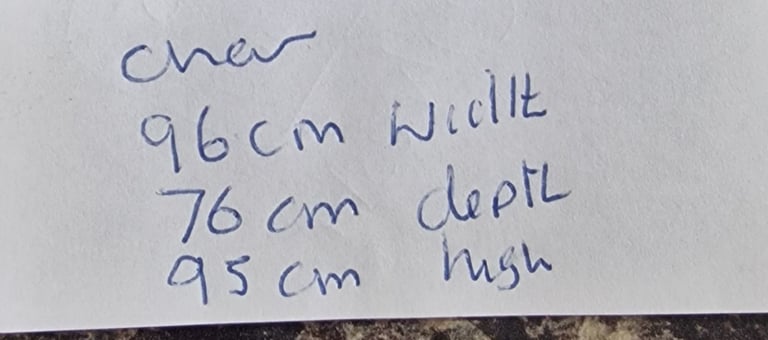 Chair
96 cm width
76 cm depth
95 cm high